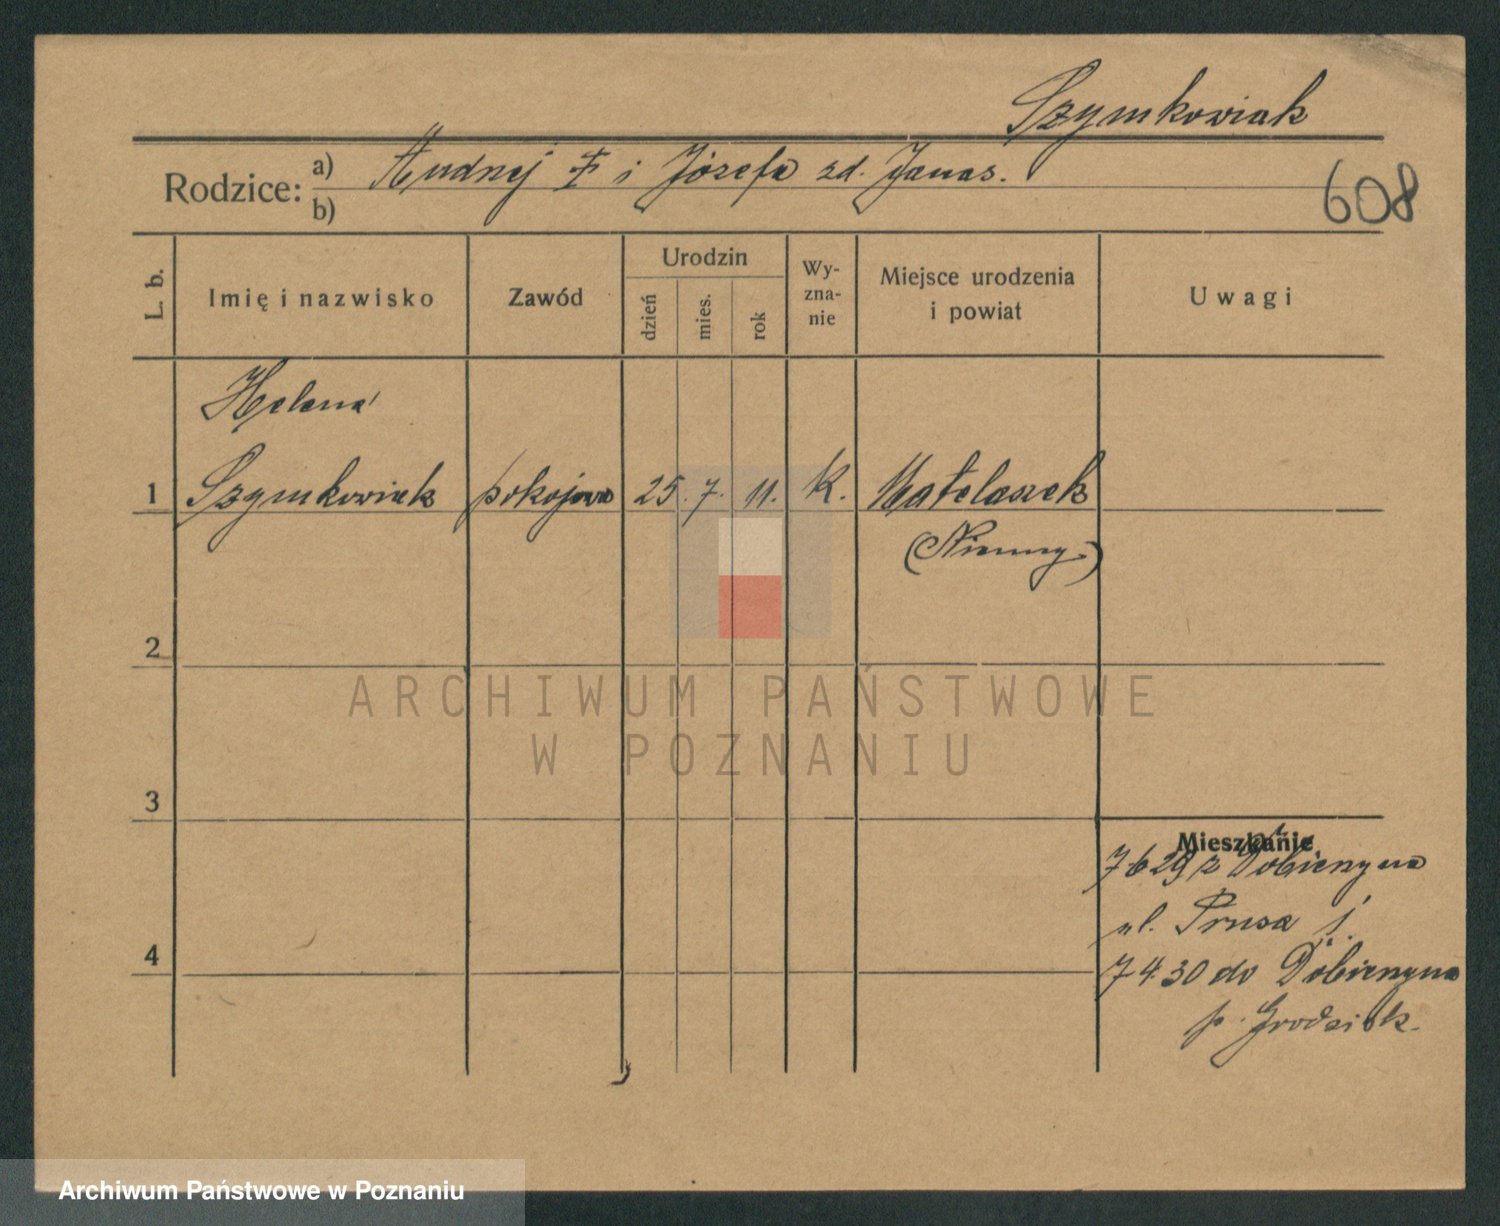 Szymkowiak
Rodzice: a) Andrzej ‡ i Józefa zd. Janas.
b)
608
L. b.
Imię i nazwisko
Zawód
Urodzin
dzień
mies.
rok
Wy-
zna-
nie
Miejsce urodzenia
i powiat
Uwagi
Helena
1 Szymkowiak pokojowa 25. 7. 11. K.
(Niemcy)
2
3
4
Mieszkanie
7 6 29 z
ul. Prusa 1.
7 4.30 do
p. Grodzisk.
ARCHIWUM PAŃSTWOWE
W POZNANIU
Archiwum Państwowe w Poznaniu